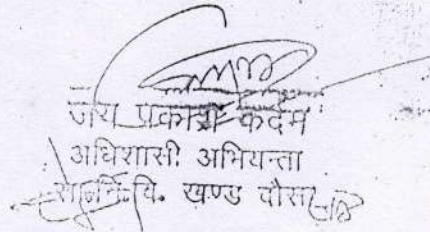 जय प्रकाश कदम
अधिशासी अभियन्ता
सा.नि.वि. खण्ड दौसा